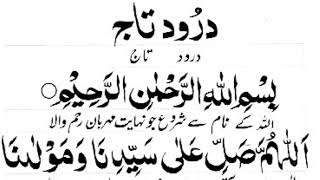 درُود تاج
درود تاج
بِسْمِ اللهِ الرَّحْمٰنِ الرَّحِيْمِ ○
اللہ کے نام سے شروع جو نہایت مہربان رحم والا
اَللّٰهُمَّ صَلِّ عَلٰى سَيِّدِنَا وَمَوْلٰىنَا